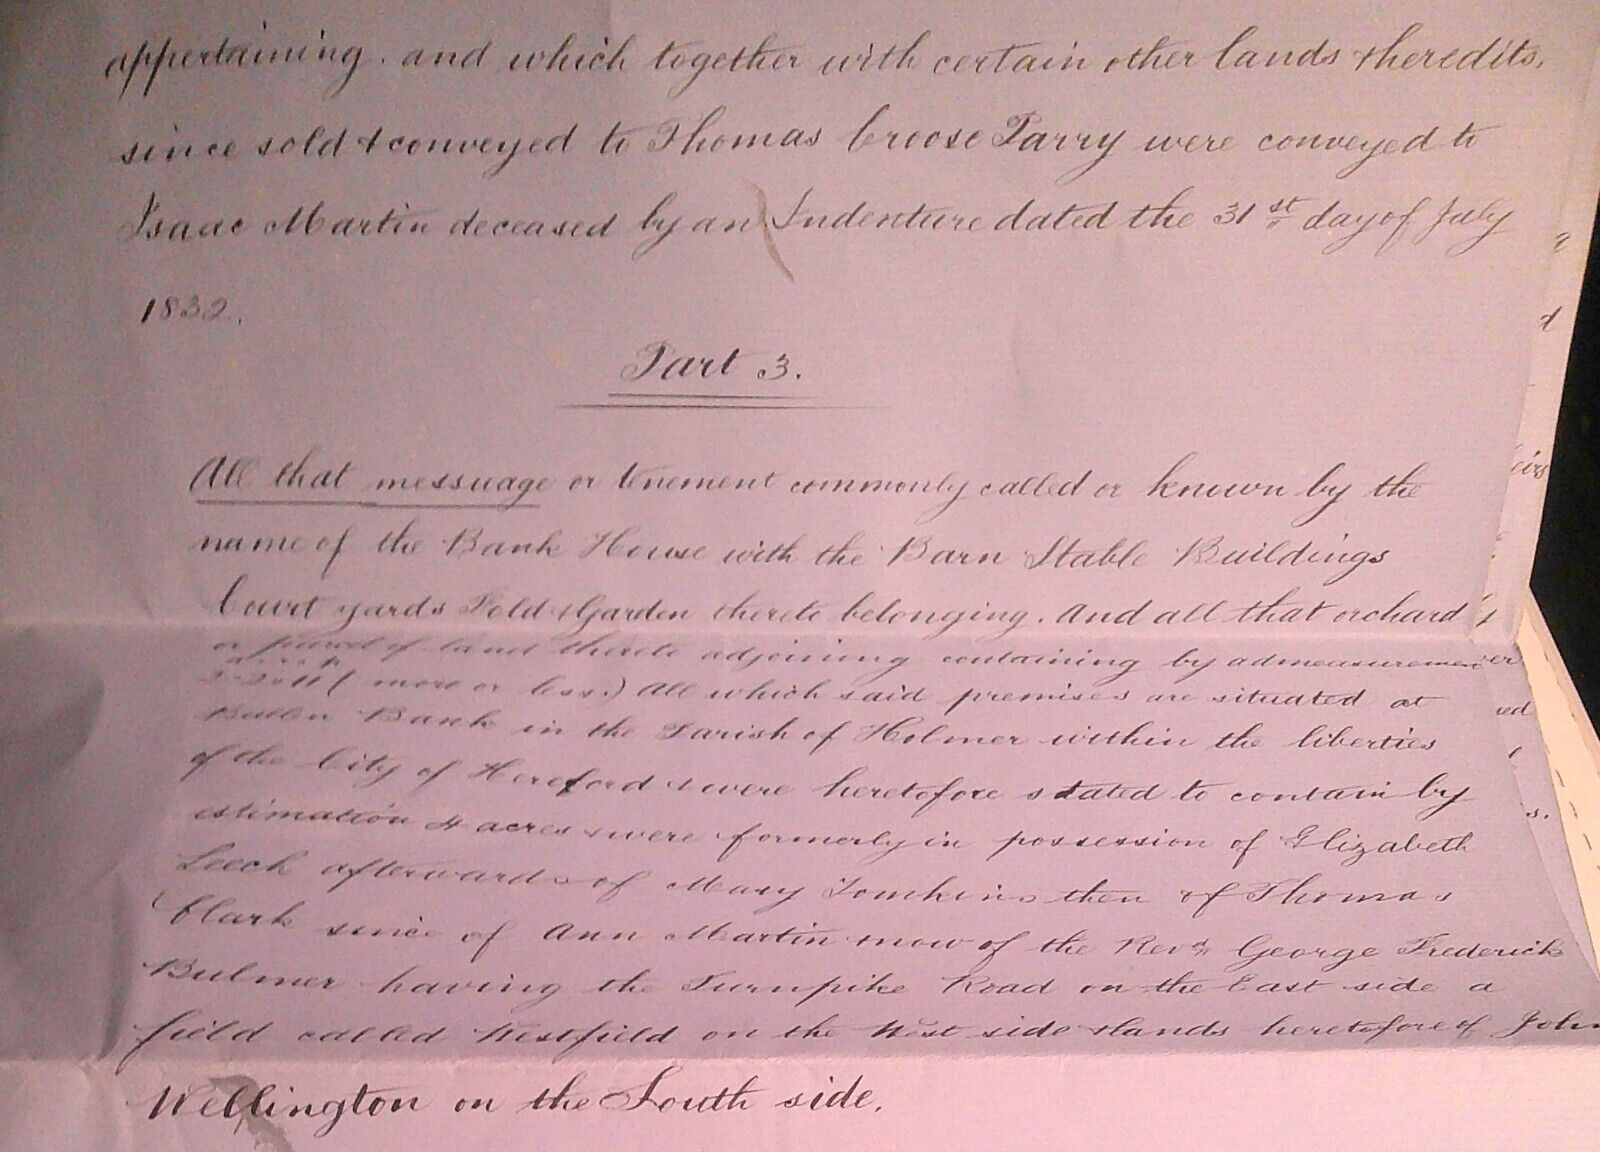 appertaining. and which together with certain other lands & heredits,
since sold & conveyed to Thomas Croose Parry were conveyed to
Isaac Martin deceased by an Indenture dated the 31st day of July
1832.
Part 3.
All that messuage or tenement commonly called or known by the
name of the Bank House with the Barn Stable Buildings
Court yards Fold & Garden thereto belonging. And all that orchard
or parcel of land thereto adjoining containing by admeasurement
(more or less.) All which said premises are situated at
Bullen Bank in the Parish of Holmer within the liberties
of the City of Hereford & were heretofore stated to contain by
estimation 4 acres & were formerly in possession of Elizabeth
Leech afterwards of Mary Tomkins then of Thomas
Clark since of Ann Martin & now of the Revd. George Frederick
Bulmer having the Turnpike Road on the East side a
field called Westfield on the West side & lands heretofore of John
Wellington on the South side.